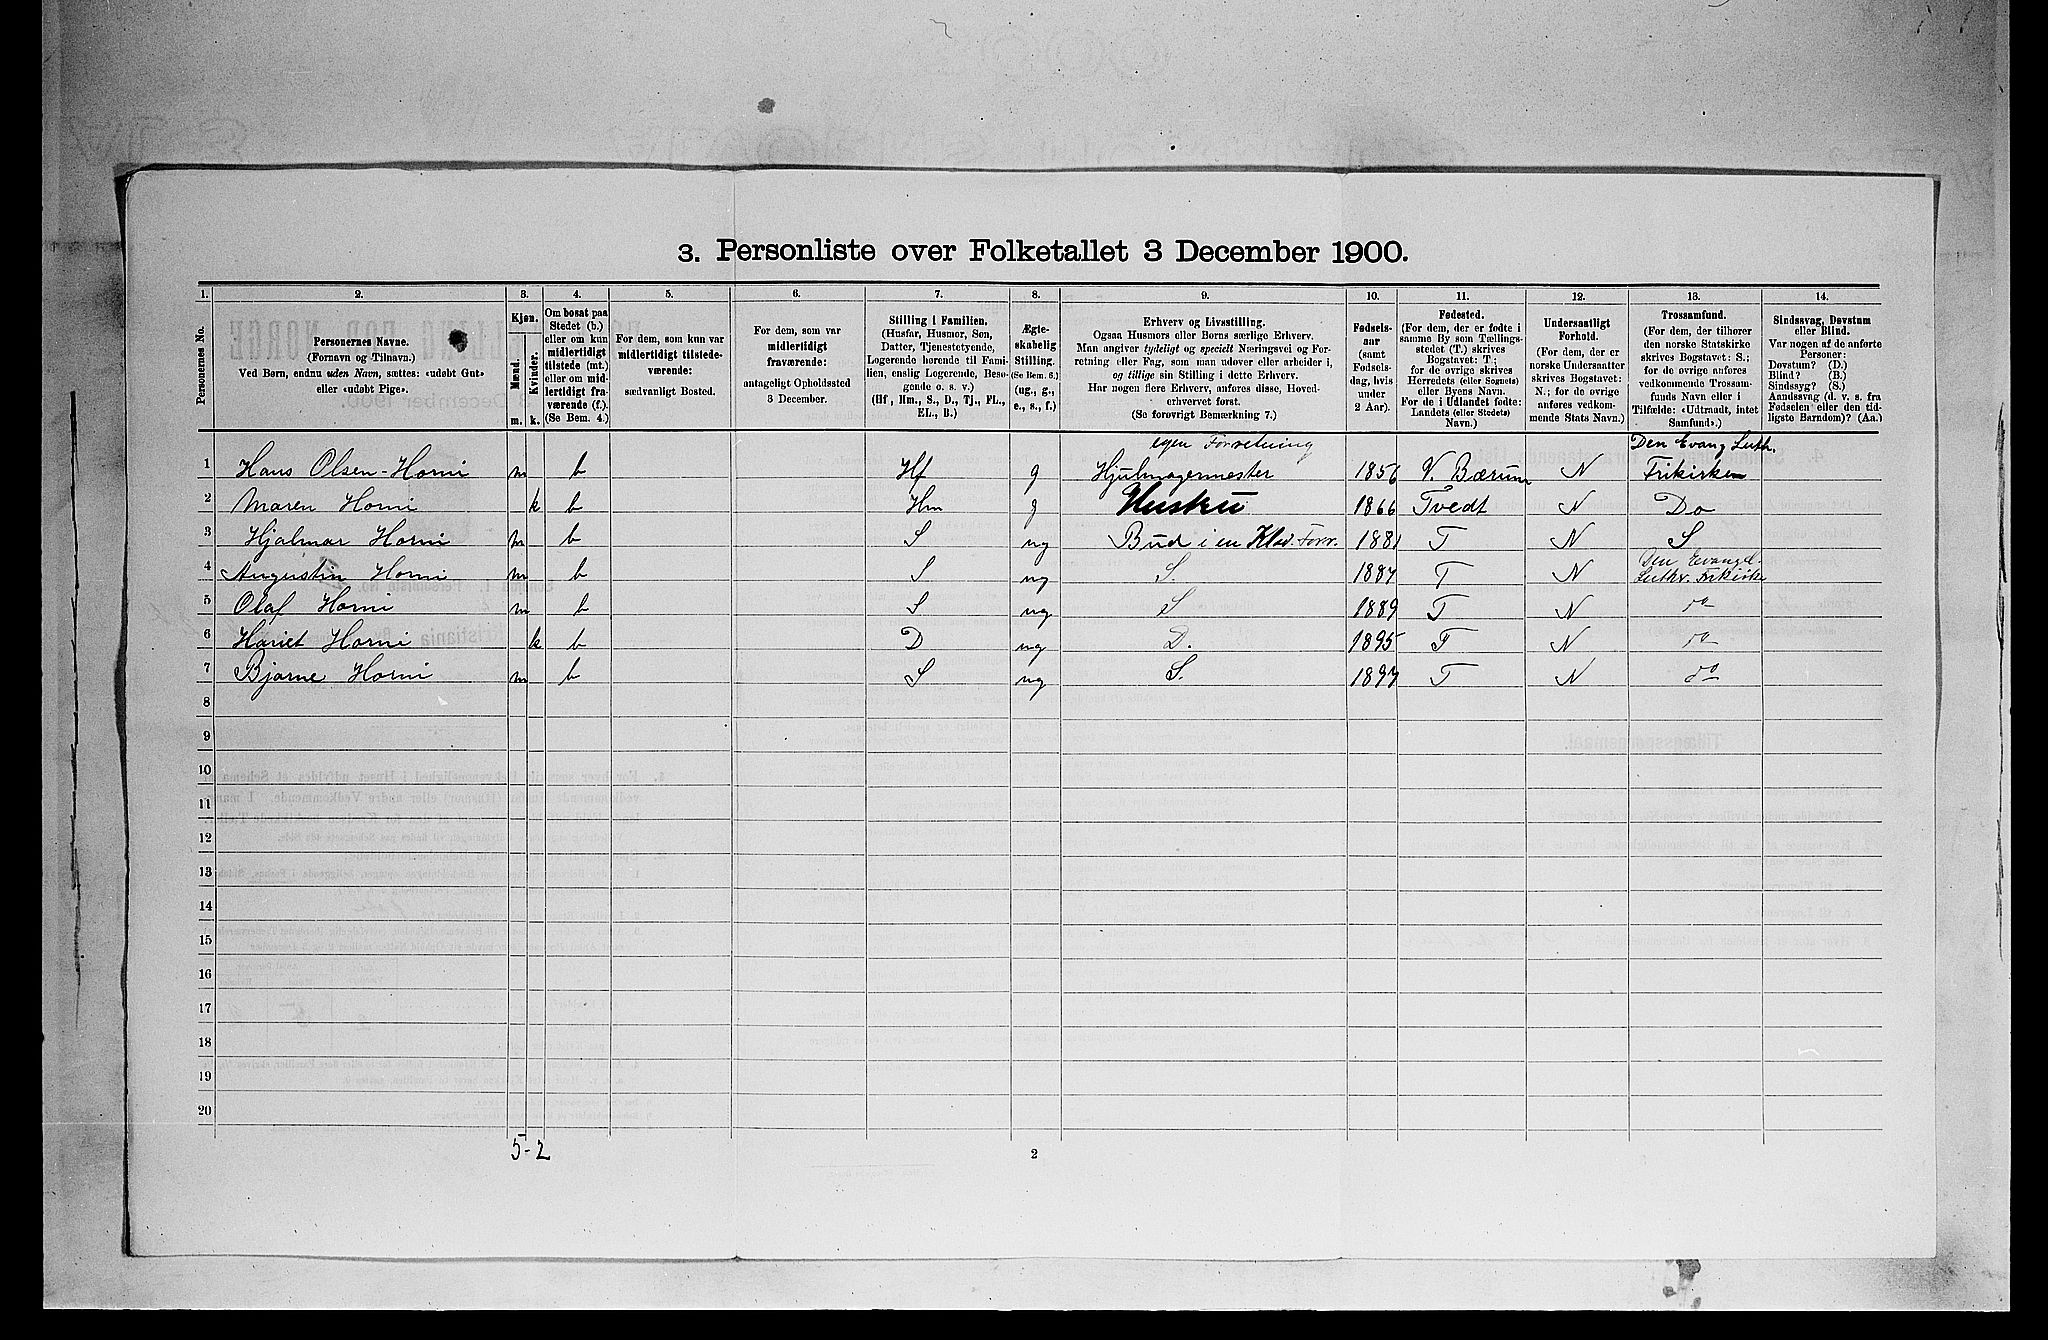 3. Personliste over Folketallet 3 December 1900.
1. 2. 3. 4. 5. 6. 7. 8. 9. 10. 11. 12. 13. 14.
Personernes No.
Personernes Navne.
(Fornavn og Tilnavn.)
Ved Børn, endnu uden Navn, sættes: «udøbt Gut»
eller «udøbt Pige».
Kjøn.
Mænd.
Kvinder.
m. k.
Om bosat paa
Stedet (b.)
eller om kun
midlertidigt
tilstede (mt.)
eller om mid-
lertidigt fra-
værende (f.)
(Se Bem. 4.)
For dem, som kun var
midlertidigt tilstede-
værende:
sædvanligt Bosted.
For dem, som var
midlertidigt
fraværende:
antageligt Opholdssted
3 December.
Stilling i Familien.
(Husfar, Husmor, Søn,
Datter, Tjenestetyende,
Logerende hørende til Fami-
lien, enslig Logerende, Besø-
gende o. s. v.)
(Hf, Hm., S., D., Tj., FL.,
EL., B.)
Ægte-
skabelig
Stilling.
(Se Bem. 6.)
(ug., g.,
e., s., f.)
Erhverv og Livsstilling.
Ogsaa Husmors eller Børns særlige Erhverv.
Man angiver tydeligt og specielt Næringsvei og For-
retning eller Fag, som man udøver eller arbeider i,
og tillige sin Stilling i dette Erhverv.
Har nogen flere Erhverv, anføres disse, Hoved-
erhvervet først.
(Se forøvrigt Bemærkning 7.)
Fødsels-
aar
(samt
Fødsels-
dag, hvis
under
2 Aar).
Fødested.
(For dem, der er fødte i
samme By som Tællings-
stedet (T.) skrives
Bogstavet: T.;
for de øvrige skrives
Herredets (eller Sognets)
eller Byens Navn.
For de i Udlandet fødte:
Landets (eller Stedets)
Navn.)
Undersaatligt
Forhold.
(For dem, der er
norske Undersaatter
skrives Bogstavet:
N.; for de øvrige
anføres vedkom-
mende Stats Navn.)
Trossamfund.
(For dem, der tilhører
den norske Statskirke
skrives Bogstavet: S.;
for de øvrige anføres
vedkommende Trossam-
funds Navn eller i
Tilfælde: «Udtraadt, intet
Samfund».)
Sindssvag, Døvstum
eller Blind.
Var nogen af de anførte
Personer:
Døvstum? (D.)
Blind? (B.)
Sindssyg? (S.)
Aandssvag (d. v. s. fra
Fødselen eller den tid-
ligste Barndom)? (Aa.)
egen Forretning Den Evang Luth.
1 Hans Olsen-Horni m b Hf g Hjulmagermester 1856 V. Bærum N Frikirken
2 Maren Horni k b Hm g Hustru 1866 Tvedt N Do
3 Hjalmar Horni m b S ug Bud i en Klæd. Forr. 1881 T N S
Den Evangel.
4 Augustin Horni m b S ug S. 1887 T N Luthr. Frikirke
5 Olaf Horni m b S ug S 1889 T N do
6 Hariet Horni k b D ug D. 1895 T N do
7 Bjarne Horni m b S ug S. 1897 T N do
8
9
10
11
12
13
14
15
16
17
18
19
20
5-2
2